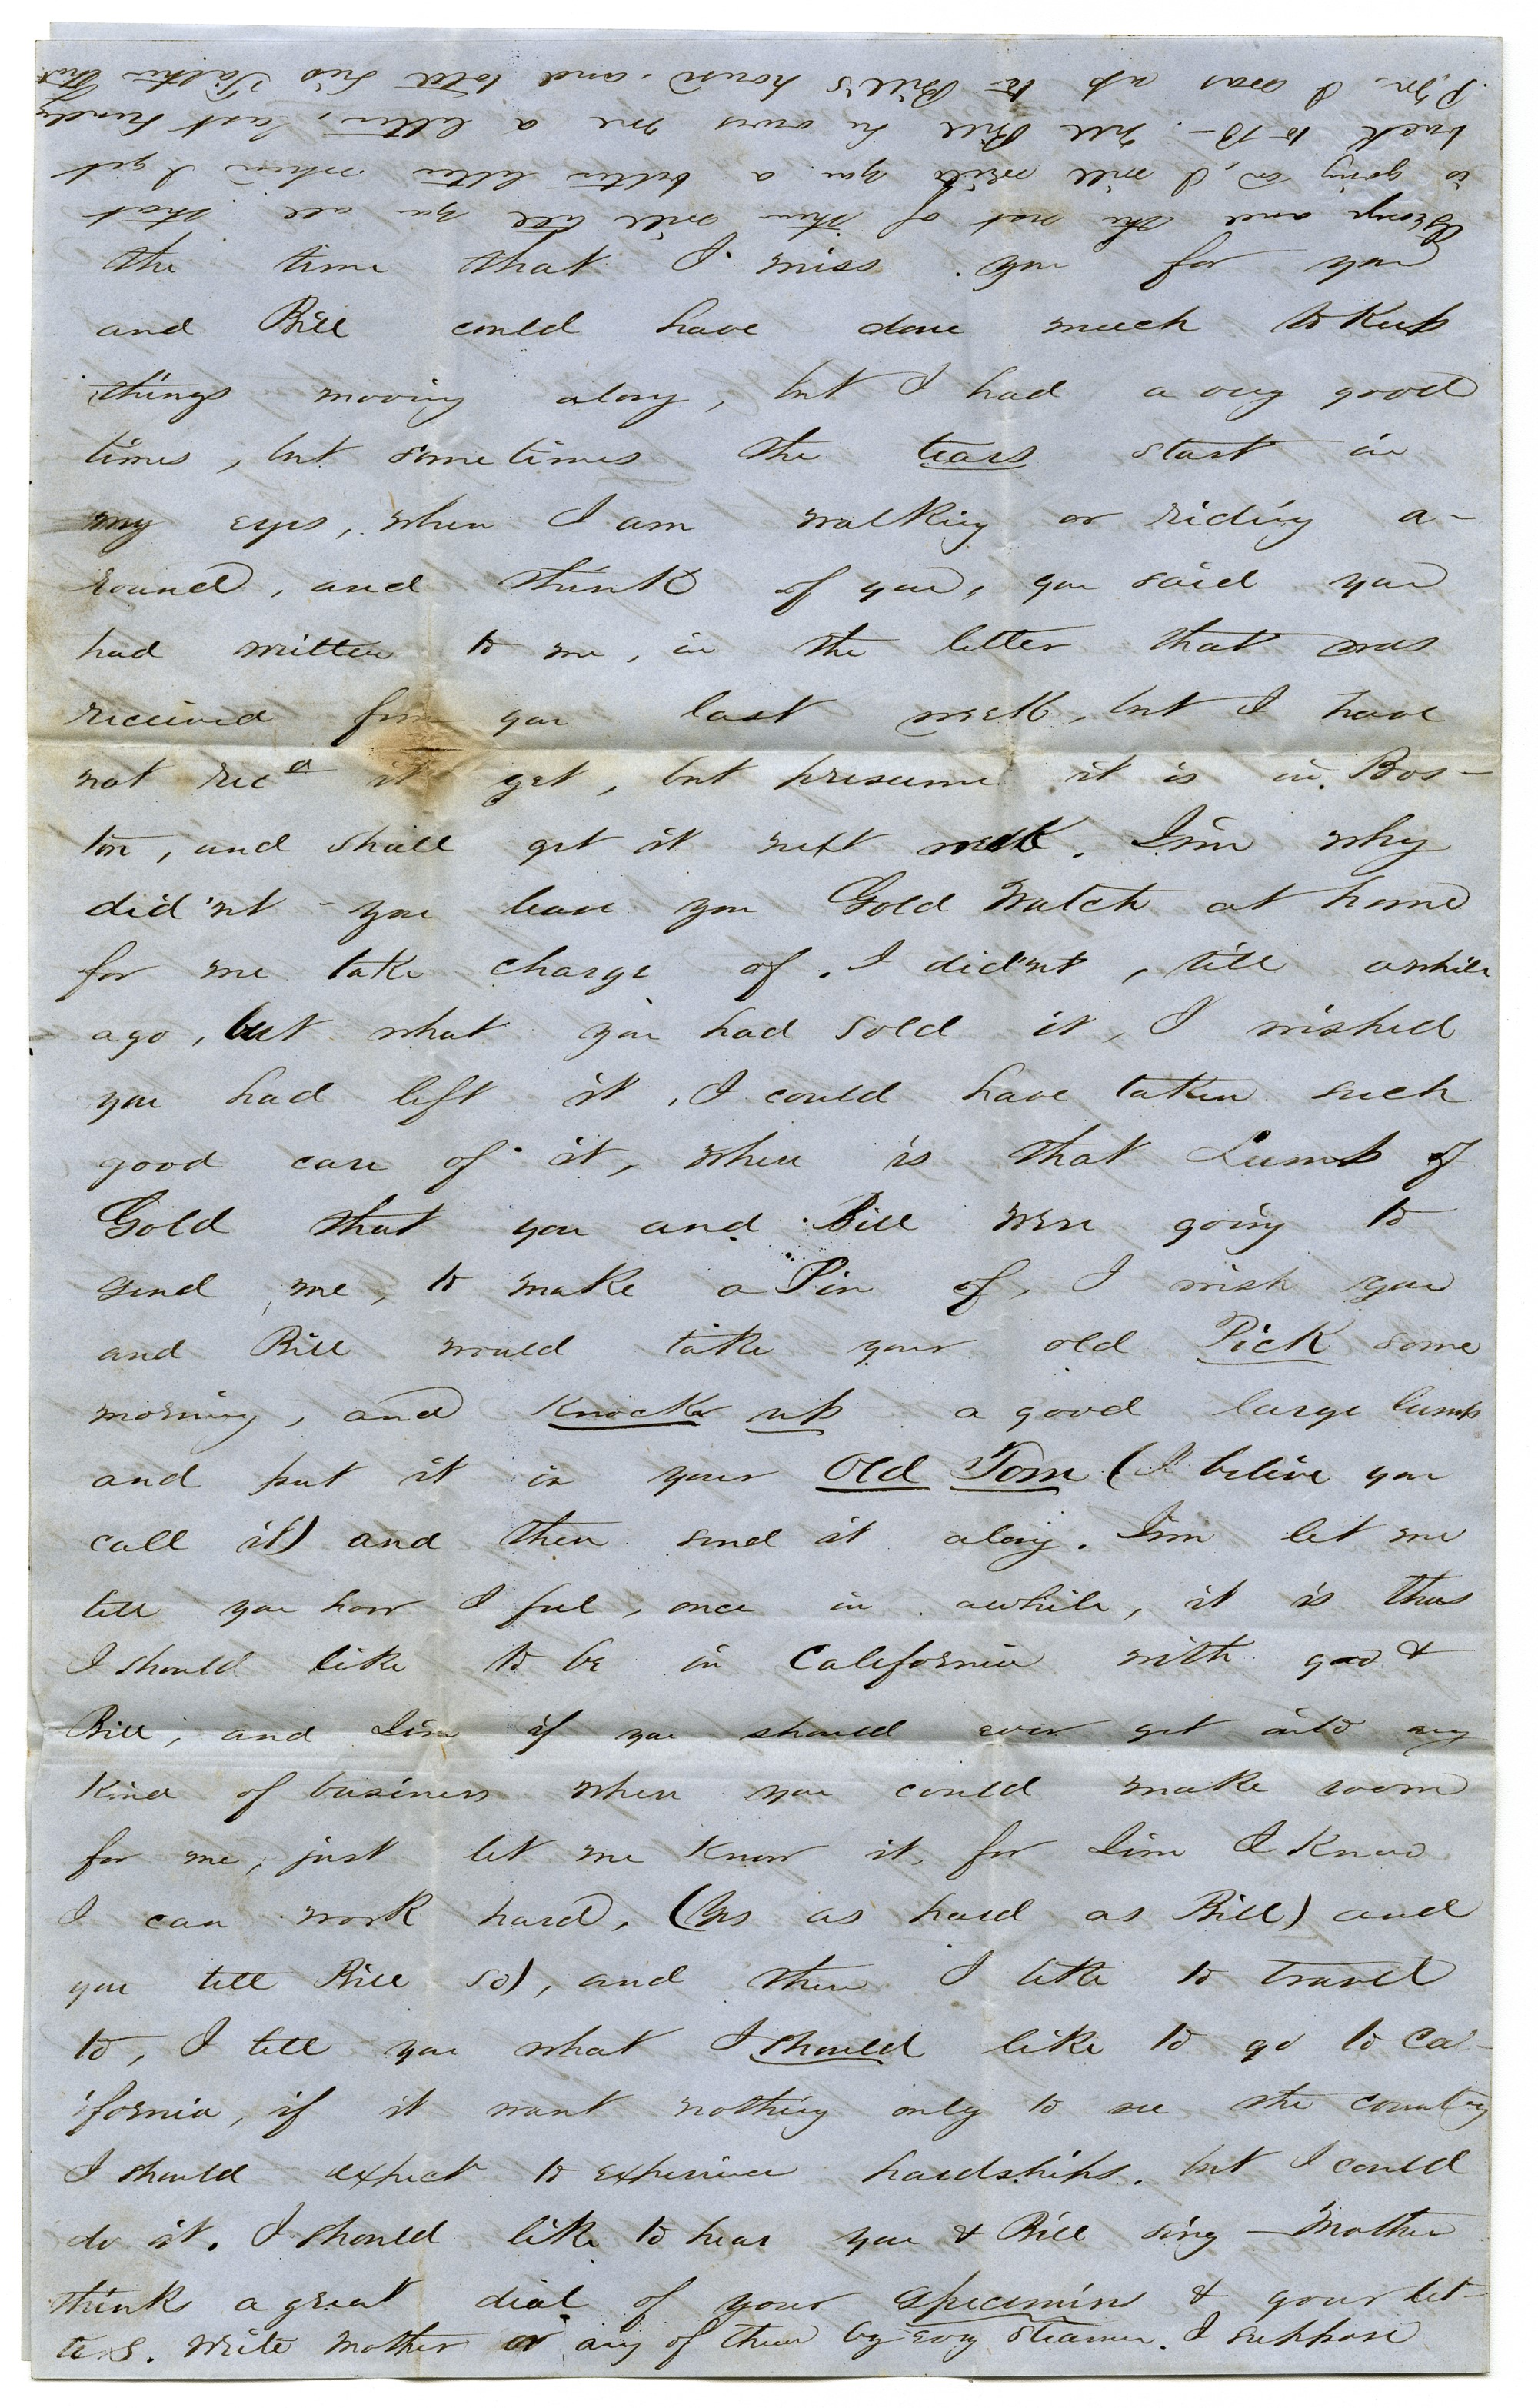 the time that I miss you for you
and Bill could have done much to Keep
things moving along, but I had a very good
times, but sometimes the tears start in
my eyes, when I am walking or riding a-
round, and think of you, you said you
had written to me, in the letter that was
received from you last week, but I have
not recd it yet, but presume it is in Bos-
ton, and shall get it next week. Jim why
did'nt you leave you Gold Watch at home
for me take charge of. I did'nt, till awhile
ago, but what you had sold it, I wished
you had left it, I could have taken such
good care of it, where is that Lump of
Gold that you and Bill were going to
send me, to make a Pin of, I wish you
and Bill would take your old Pick some
morning, and Knock up a good large lump
and put it in your Old Tom (I belive you
call it) and then send it along. Jim let me
tell you how I feel, once in awhile, it is thus
I should like to be in California with you &
Bill, and Jim if you should ever get into any
Kind of business where you could make room
for me, just let me Know it, for Jim I Know
I can work hard, (Yes as hard as Bill) and
you tell Bill so), and then I like to travel
to, I tell you what I should like to go to Cal-
ifornia, if it want nothing only to see the country
I should expect to experince hardships. but I could
do it. I should like to hear you & Bill sing — Mother
think a great deal of your specimins & your let-
ters. Write Mother or any of them by evry steamer. I suppose
George and the rest of them will tell you all that
is going on, I will write you a better letter when I get
back to B— Tell Bill he owes me a letter, last Sunday
P.M. I was up to Bill's house and told his Father that